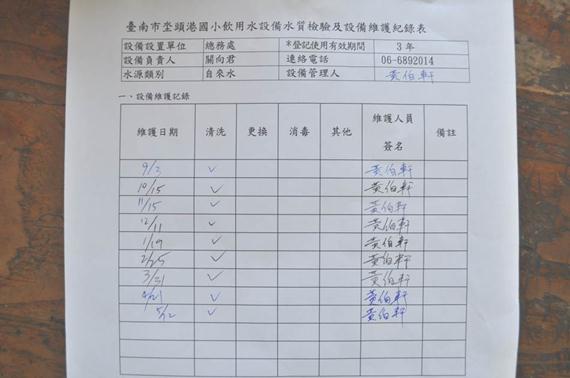 臺南市坔頭港國小飲用水設備水質檢驗及設備維護紀錄表
設備設置單位 總務處 *登記使用有效期間 3 年
設備負責人 關向君 連絡電話 06-6892014
水源類別 自來水 設備管理人 黃伯軒
一、設備維護記錄
維護日期 清洗 更換 消毒 其他 維護人員簽名 備註
9/3 ✓ 黃伯軒
10/15 ✓ 黃伯軒
11/15 ✓ 黃伯軒
12/11 ✓ 黃伯軒
1/19 ✓ 黃伯軒
2/25 ✓ 黃伯軒
3/31 ✓ 黃伯軒
4/21 ✓ 黃伯軒
5/12 ✓ 黃伯軒